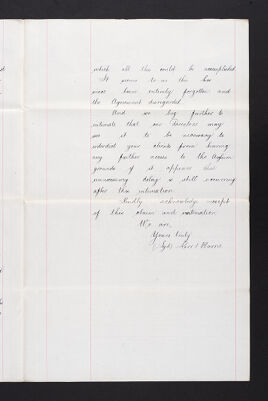 which all this could be accomplished.
It seems to us this has
been entirely forgotten and
the Agreement disregarded.
And we beg further to
intimate that our Directors may
see it to be necessary to
interdict your clients from having
any further access to the Asylum
grounds if it appears that
unnecessary delay is still occurring
after this intimation.
Kindly acknowledge receipt
of this claim and intimation
We are,
Yours truly